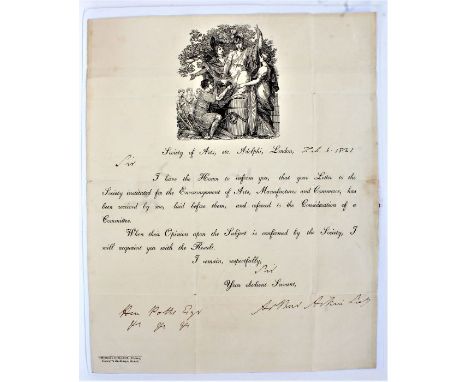 Society of Arts, etc. Adelphi, London,
Sir
I have the Honor to inform you, that your Letter to the
Society instituted for the Encouragement of Arts, Manufactures and Commerce, has
been received by me, laid before them, and referred to the Consideration of a
Committee.
When their Opinion upon the Subject is confirmed by the Society, I
will acquaint you with the Result.
I remain, respectfully,
Sir
Your obedient Servant,
Arthur Aikin Sec
Hen Potts Esqr